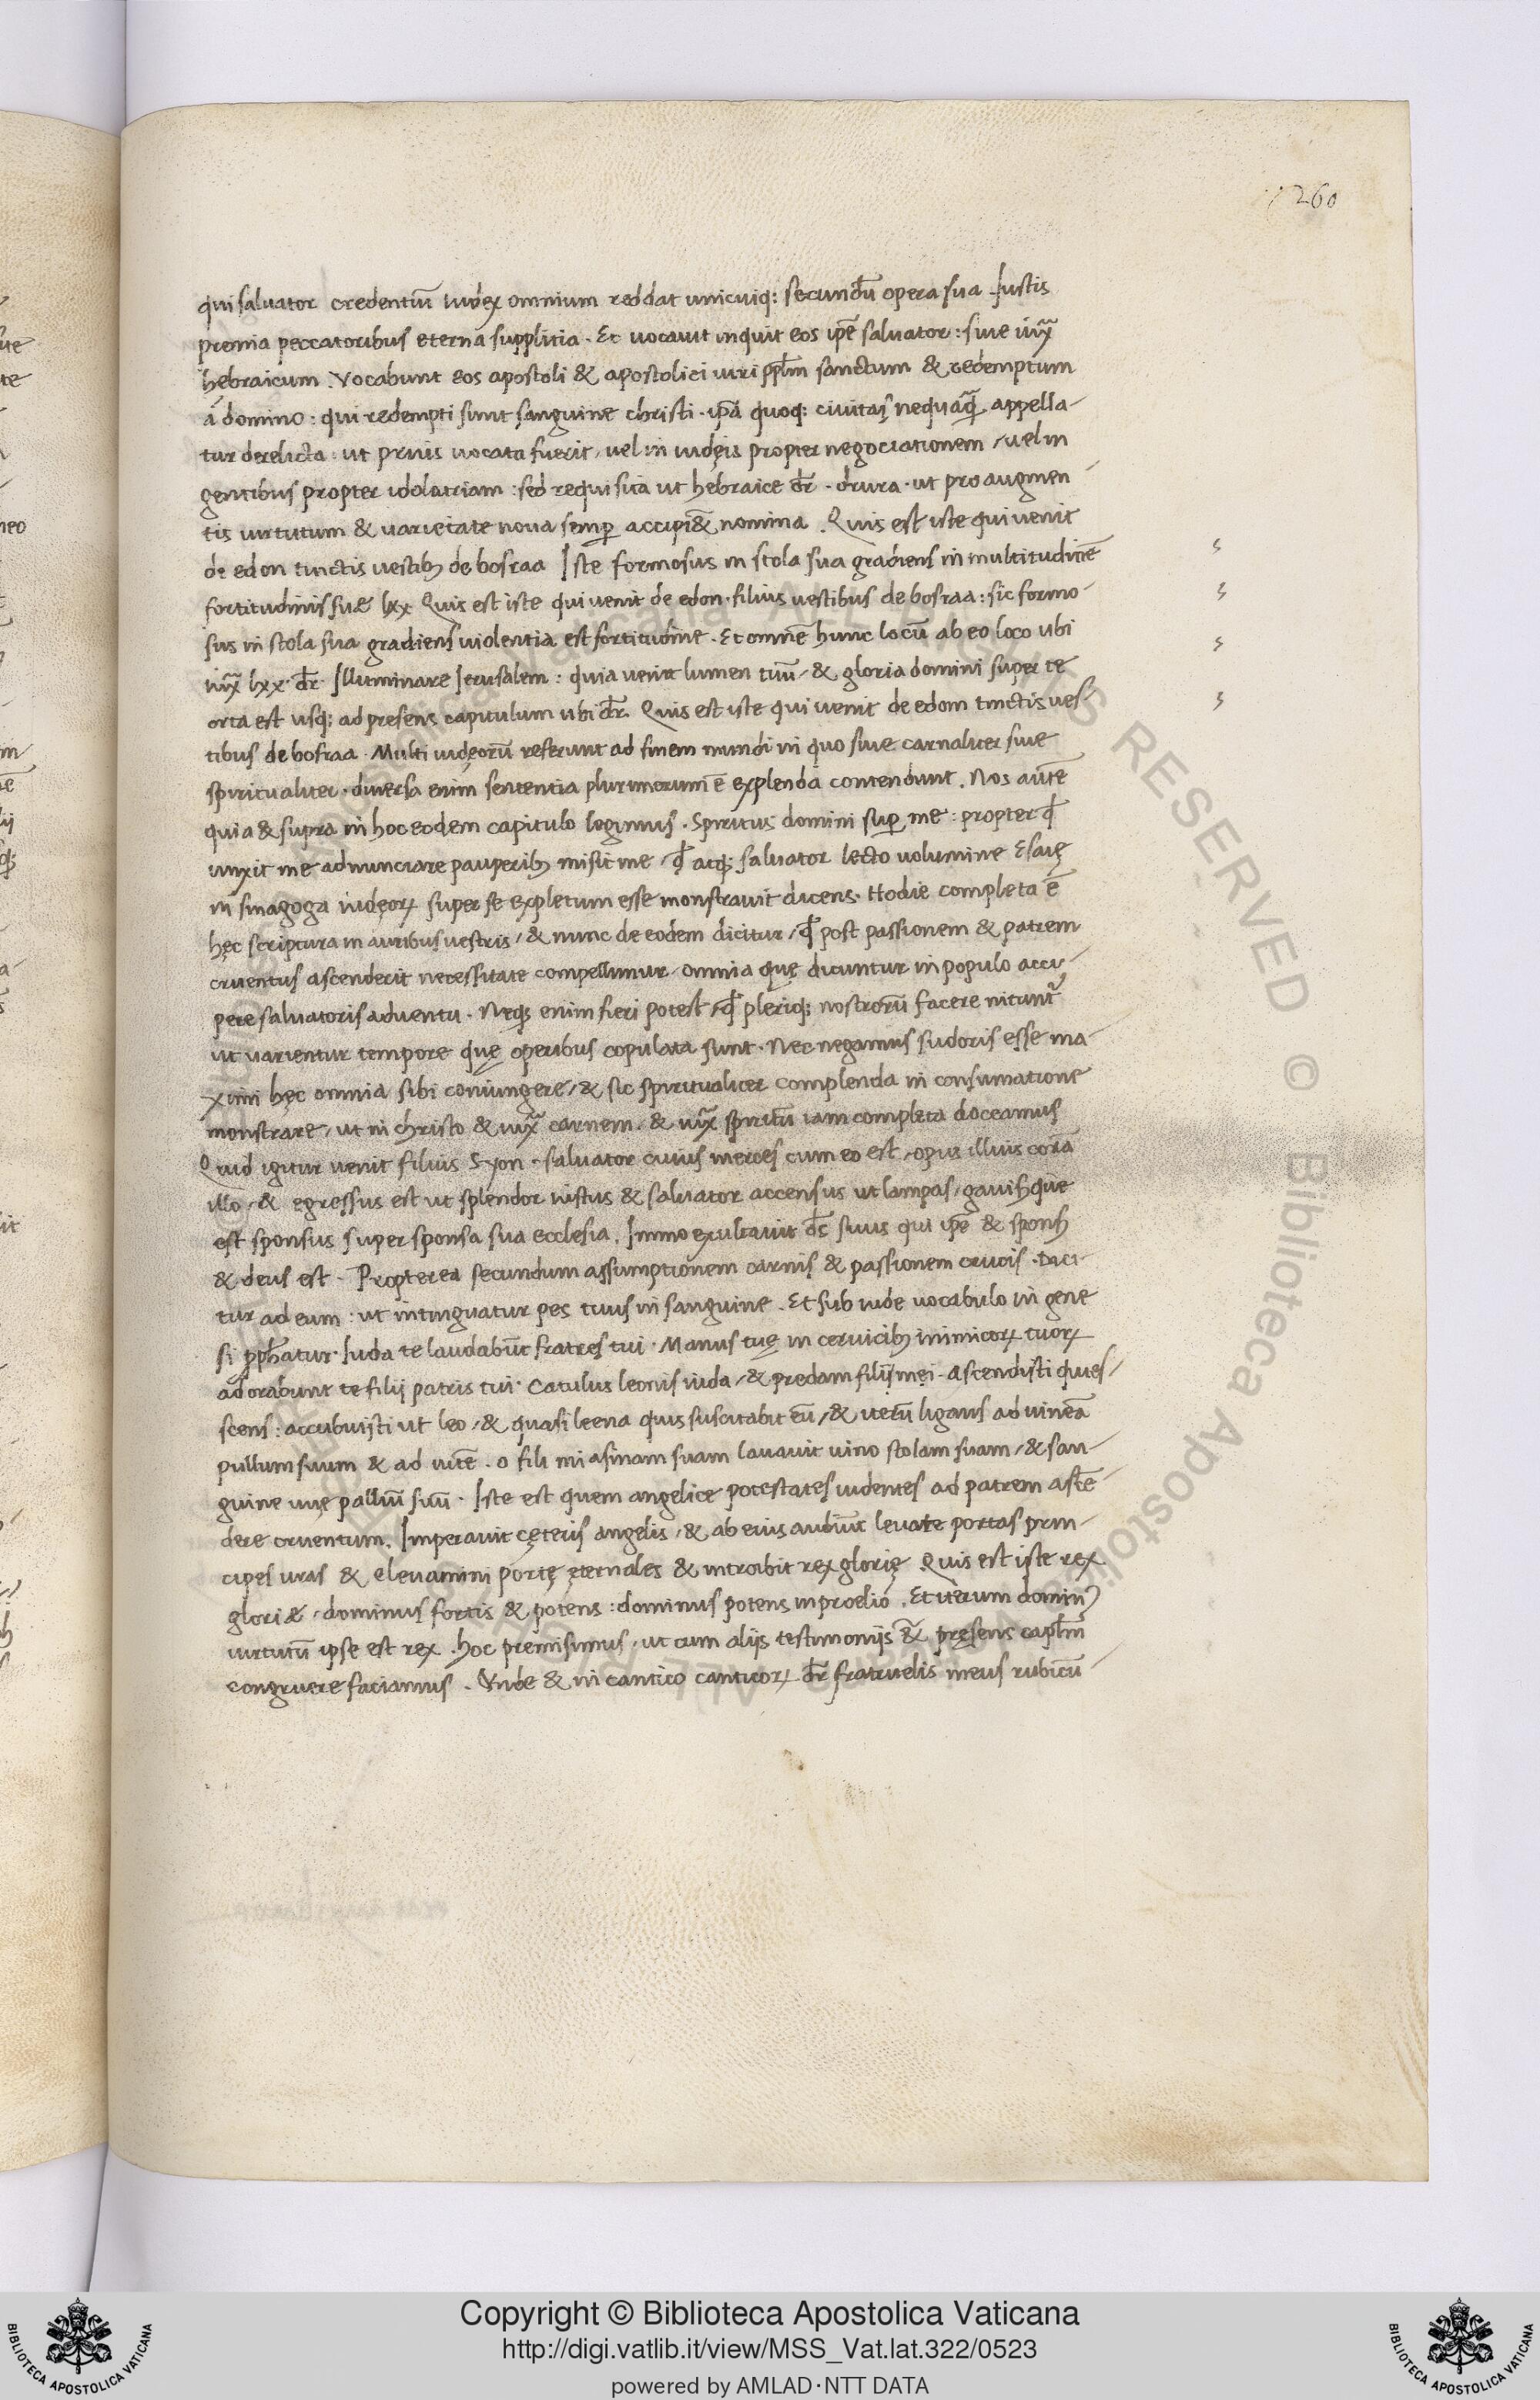 260
qui saluator credentiū iudex omnium reddat unicuiq; secundū opera sua Iustis
premia peccatoribus eterna supplitia. Et uocauit inquit eos ip̄e saluator: siue iux̄
hebraicum. Vocabunt eos apostoli & apostolici uiri pp̄lm sanctum & redemptum
a domino: qui redempti sunt sanguine christi. ip̄a quoq; ciuitas nequaq̄ appella-
tur derelicta: ut prius uocata fuerit, uel in iudęis propter negociationem, uel in
gentibus propter idolatriam: sed requisita ut hebraice dr̄. drura. ut pro augmen-
tis uirtutum & uarietate noua semp accipi& nomina. Quis est iste qui uenit
de edon tinctis uestib; de bosraa Iste formosus in stola sua gradiens in multitudinē
fortitudinis suæ lxx Quis est iste qui uenit de edon. filius uestibus de bosraa: sic formo-
sus in stola sua gradiens uiolentia est fortitudine. Et omnē hunc locū ab eo loco ubi
iux̄ lxx. dr̄. Illuminare Ierusalem: quia uenit lumen tuū, & gloria domini super te
orta est usq; ad presens capitulum ubi dr̄. Quis est iste qui uenit de edom tinctis ues-
tibus de bosraa. Multi iudęorū referunt ad finem mundi in quo siue carnaliter siue
spiritualiter. diuersa enim sententia plurimorum ē explenda contendunt. Nos autē
quia & supra in hoc eodem capitulo legimus. Spiritus domini sup me: propter qđ
unxit me adnunciare pauperib; misit me, qđ atq; saluator lecto uolumine Esaię
in sinagoga iudęoꝝ super se expletum esse monstrauit dicens. Hodie completa ē
hęc scriptura in auribus uestris, & nunc de eodem dicitur, qđ post passionem & patrem
cruentus ascenderit necessitate compellimur, omnia quę dicuntur in populo acci-
pere saluatoris aduentu. Neq; enim fieri potest, qđ pleriq; nostrorū facere nitunt̄
ut uarientur tempore quę operibus copulata sunt. Nec negamus sudoris esse ma-
ximi hęc omnia sibi coniungere, & sic spiritualiter complenda in consumatione
monstrare, ut in christo & iux̄ carnem, & iux̄ spiritū iam completa doceamus
Quid igitur uenit filius Syon. saluator cuius merces cum eo est, opus illius corā
illo, & egressus est ut splendor iustus & saluator accensus ut lampas, gauisusque
est sponsus super sponsa sua ecclesia. Immo exultauit ds̄ suus qui ip̄e & spons;
& deus est. Propterea secundum assumptionem carnis & passionem crucis. Dici-
tur ad eum: ut intinguatur pes tuus in sanguine. Et sub iude uocabulo in gene
si pph̄atur. Iuda te laudabūt fratres tui. Manus tuę in ceruicib; inimicoꝝ tuoꝝ
adorabunt te filij patris tui. Catulus leonis iuda, & predam filij mei. Ascendisti quies-
scens: accubuisti ut leo, & quasi leena quis suscitabit eū, & iterū ligans ad uineā
pullum suum & ad uitē. o fili mi asinam suam lauauit uino stolam suam, & san-
guine uuę palliū suū. Iste est quem angelice potestates uidentes ad patrem ascē-
dere cruentum. Imperauit cęteris angelis, & ab eius audiūt leuate portas prin-
cipes uras & eleuamini portę ęternales & introibit rex glorię Quis est iste rex
gloriæ, dominus fortis & potens: dominus potens in proelio. Et iterum domin⁹
uirtutū ipse est rex. hoc premisimus, ut cum alijs testimonijs & pręsens capl̄m
congruere faciamus. Vnde & in cantico canticoꝝ dr̄ fratruelis meus rubicū-
Copyright © Biblioteca Apostolica Vaticana
http://digi.vatlib.it/view/MSS_Vat.lat.322/0523
powered by AMLAD·NTT DATA